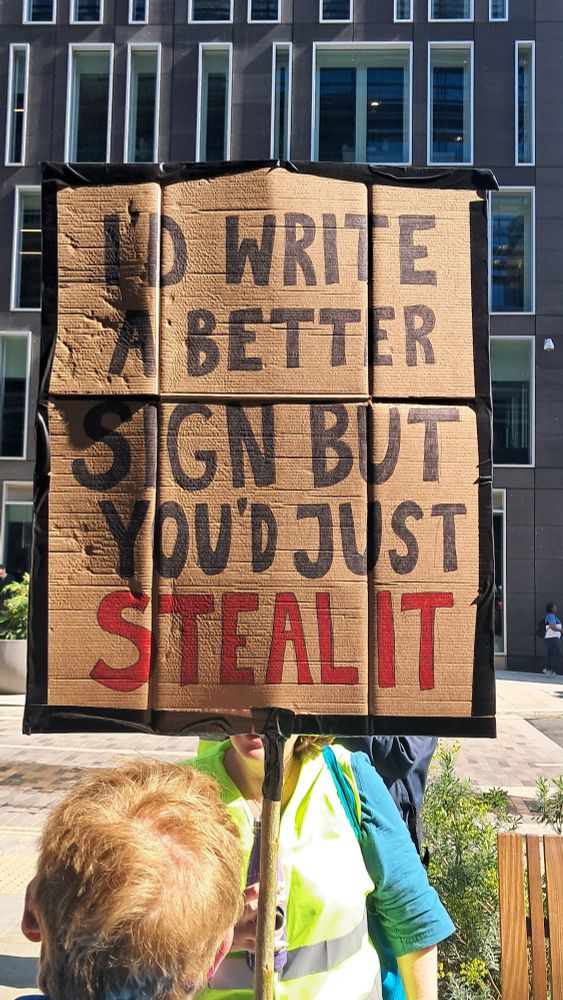 I'D WRITE
A BETTER
SIGN BUT
YOU'D JUST
STEAL IT